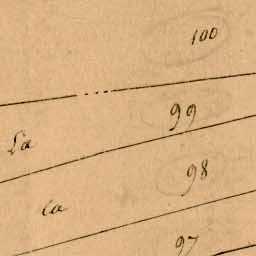 100
99
La
98
la
97